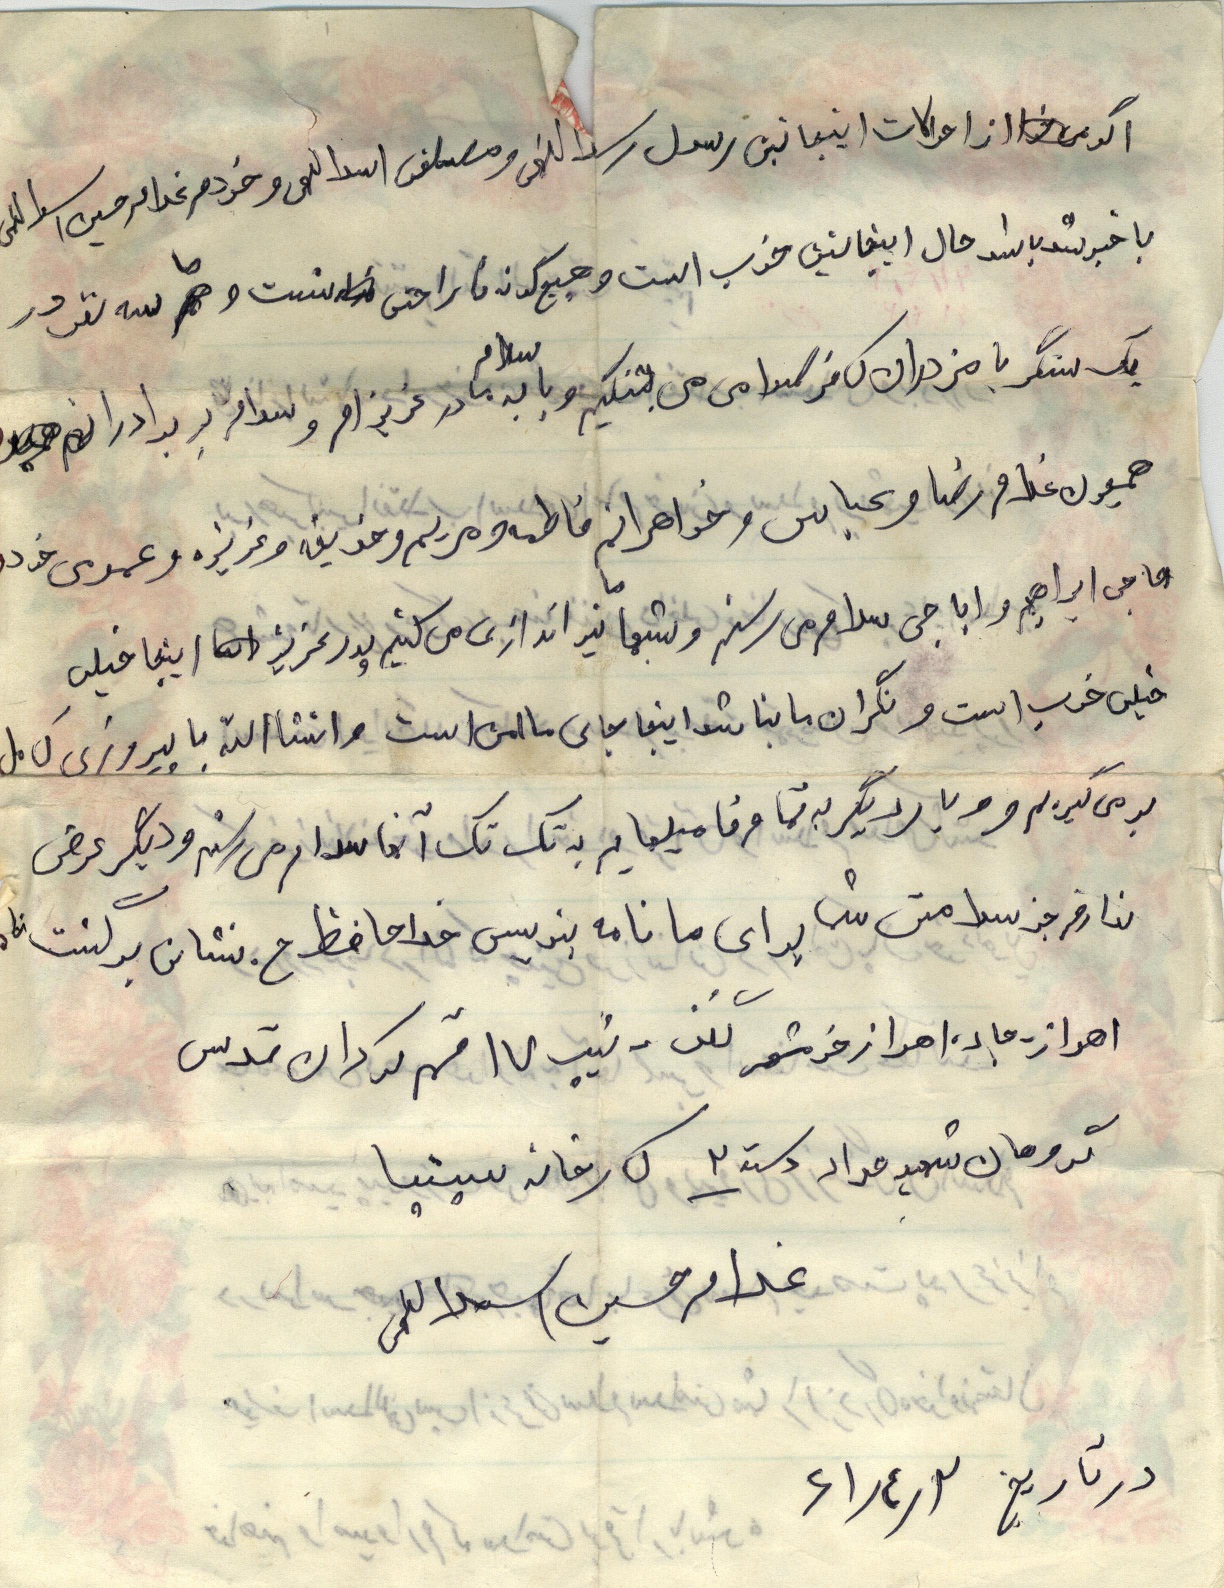 اگر از احوالات اینجانب رسول اسداللهی و مصطفی اسداللهی و خودم غلامرحسین اسداللهی
با خبر شد باشد حال اینجانب خوب است و هیچ گونه ناراحتی نیست و ما سه نفر در
یک سنگر با مزدوران کافر می می جنگیم و با سلام به مادر عزیزم و سلام بر برادرانم
همیون غلام رضا و عباس و خواهرانم فاطمه و مریم و خدیفه و عزیزه و عموی خود
حاجی ابراهیم و اباجی سلام می رسنم و شبها ما تیر اندازی می کنیم پدر عزیز اینجا خیلی
خیلی خوب است و نگران ما نباشد اینجا جای ما امن است و انشاالله با پیروزی کامل
بر می گیردیم و و بار دیگر به تمام فامیلهایم به تک تک آنها سلام می رسنم و دیگر عرضی
ندارم جز سلامتی شما برای ما نامه بنویس خدا حافظ ج. نشانی برگشت نامه
اهواز - جاده اهواز خرمشهر - تیپ ۱۷ قم گردان قدس
گروهان شهید مراد دسته ۲ کارخانه سپنتا
غلامرحسین اسداللهی
در تاریخ ۶۱/۴/۲